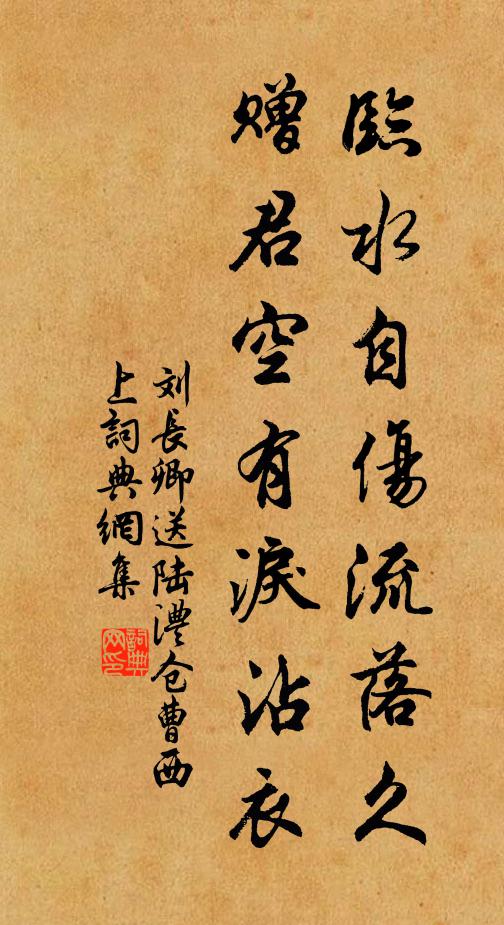 臨水自傷流落久
贈君空有淚沾衣
刘長卿送陆澧仓曹西
上詞典網集
詞典
网印